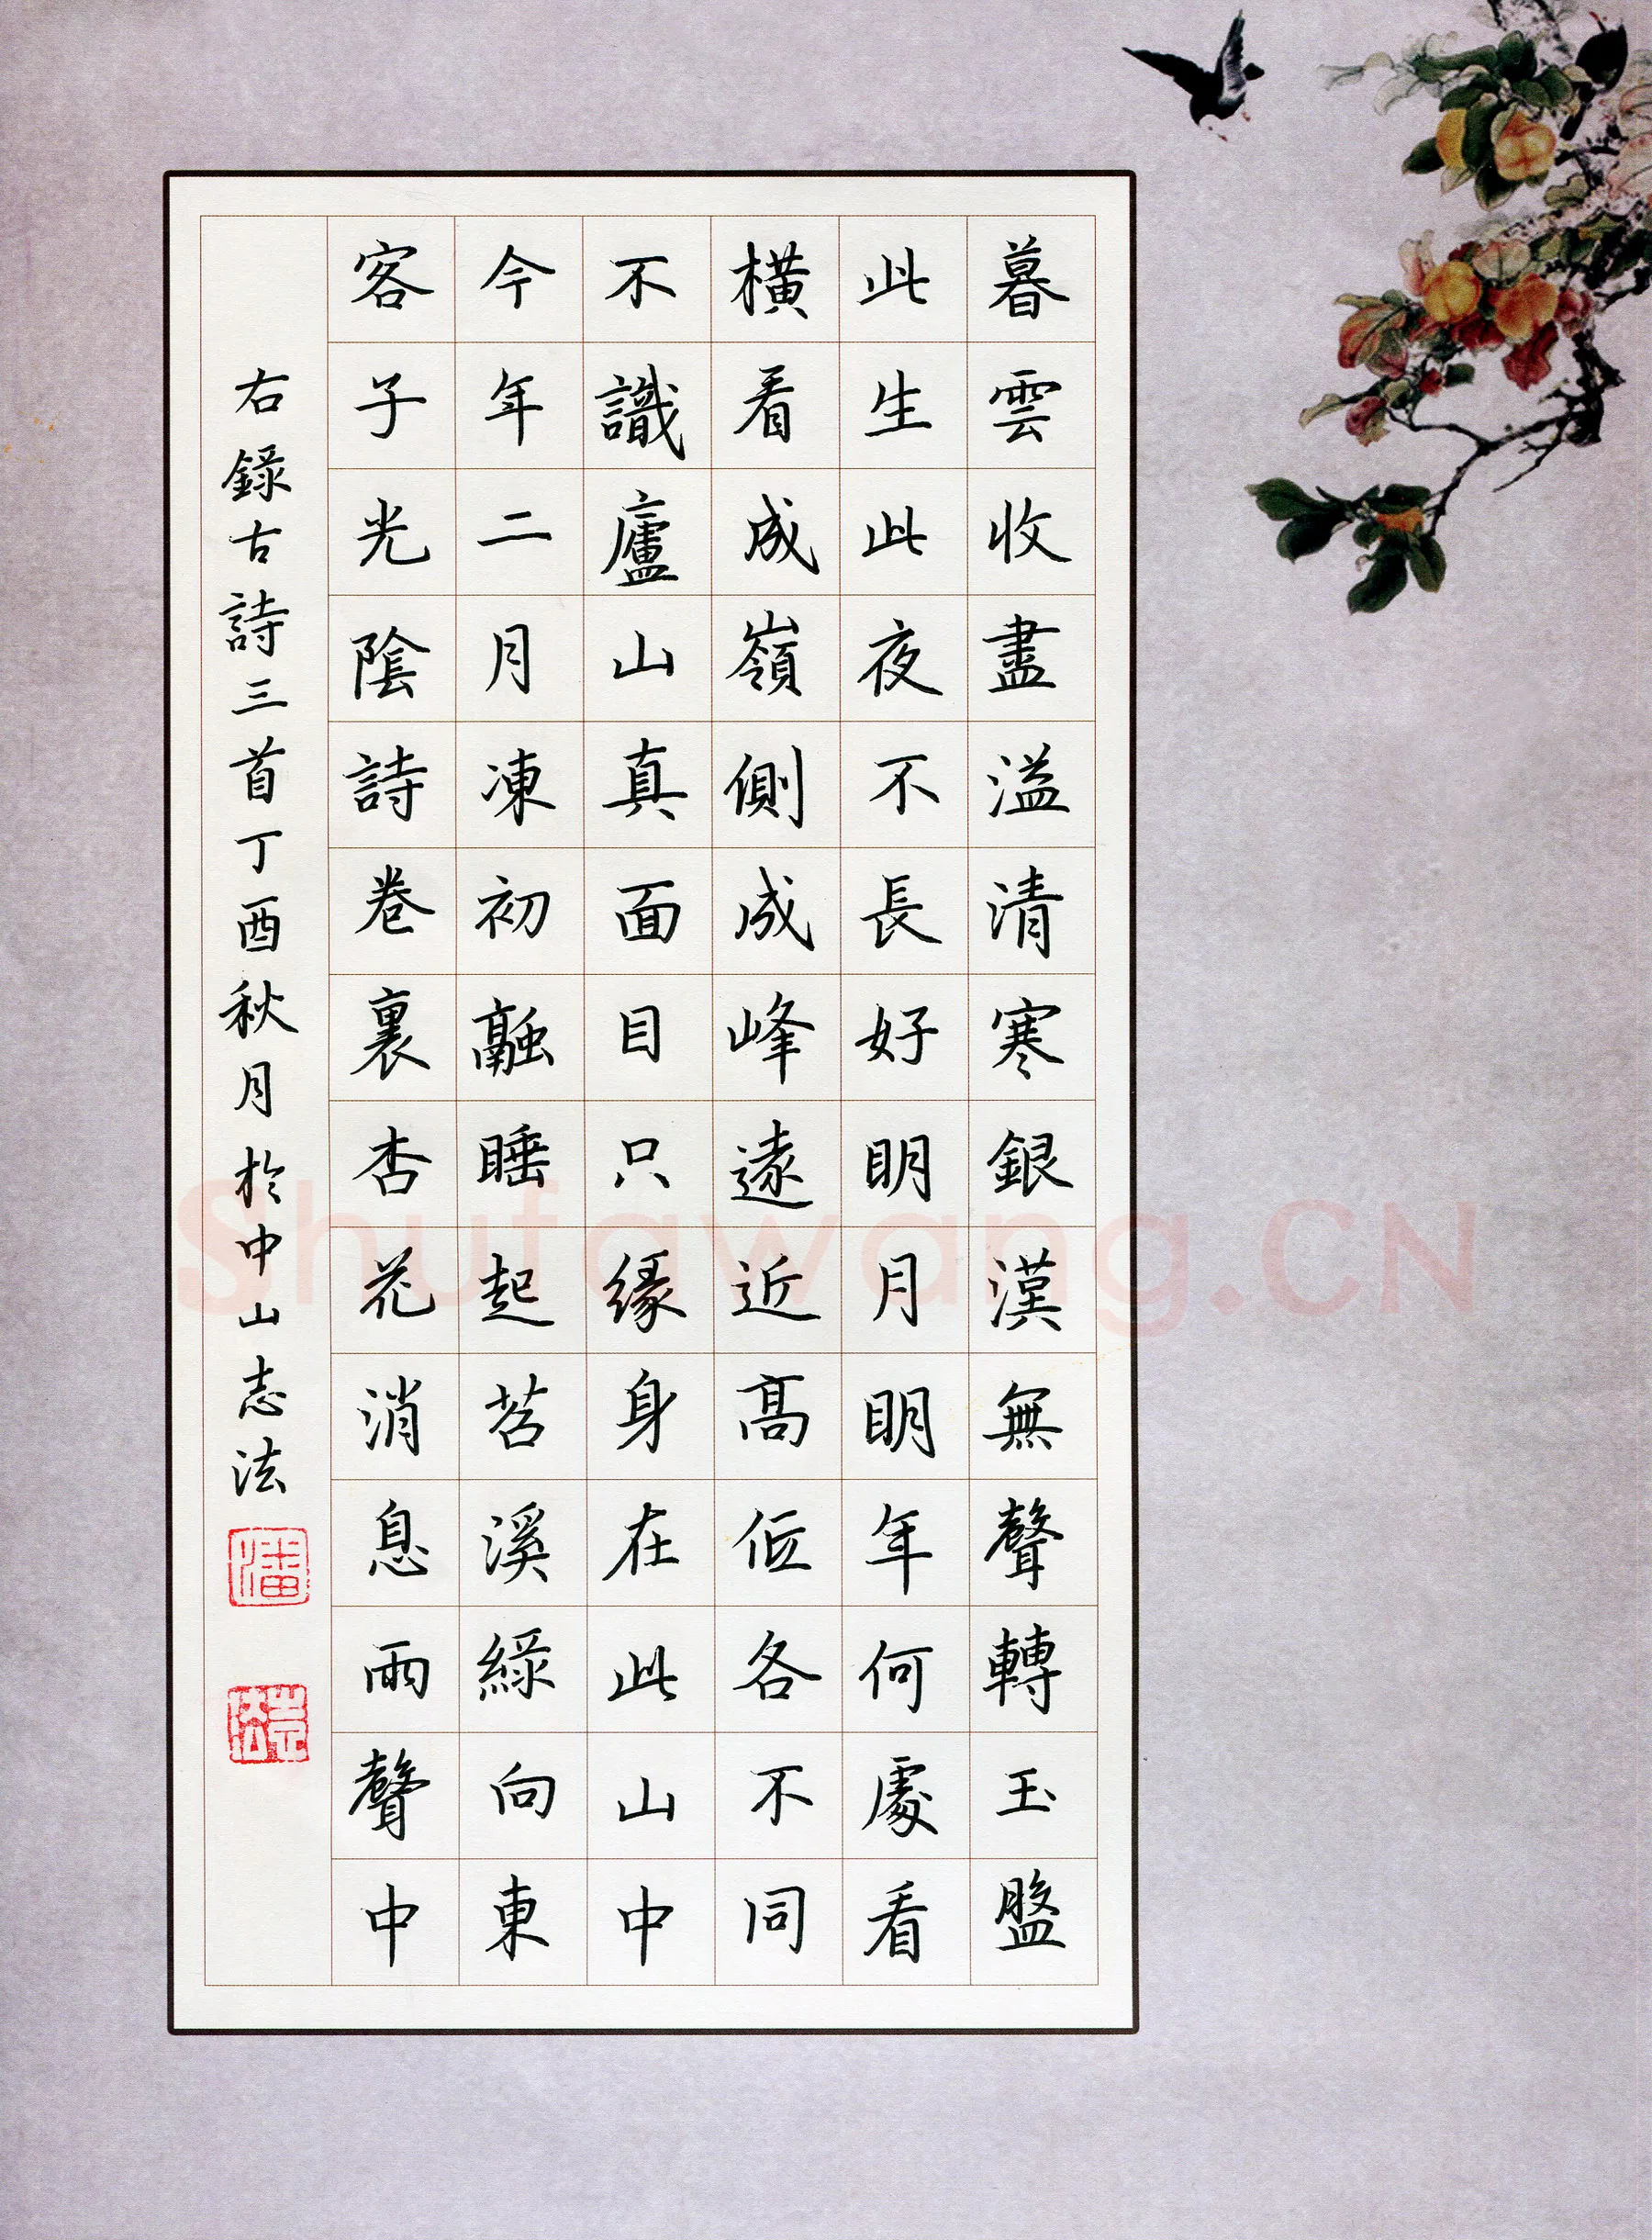 暮雲收盡溢清寒銀漢無聲轉玉盤
此生此夜不長好明月明年何處看
橫看成嶺側成峰遠近高低各不同
不識廬山真面目只緣身在此山中
今年二月凍初融睡起苕溪綠向東
客子光陰詩卷裏杏花消息雨聲中
右錄古詩三首丁酉秋月於中山志法
潘
志法
Shufawang.CN